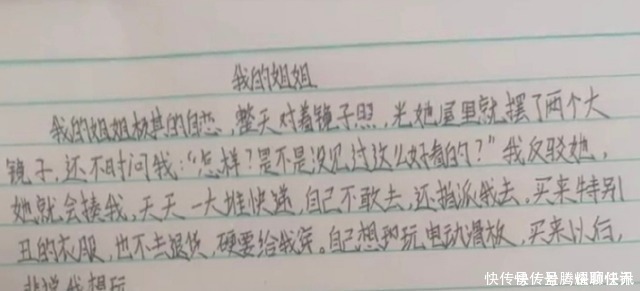 我的姐姐
我的姐姐极其的自恋,整天对着镜子照,光她屋里就摆了两个大
镜子,还不时问我:“怎样?是不是没见过这么好看的?”我反驳她,
她就会揍我,天天一大堆快递,自己不敢去,还指派我去,买来特别
丑的衣服,也不去退货,硬要给我穿。自己想玩电动滑板,买来以后,
非说我想玩
快传号